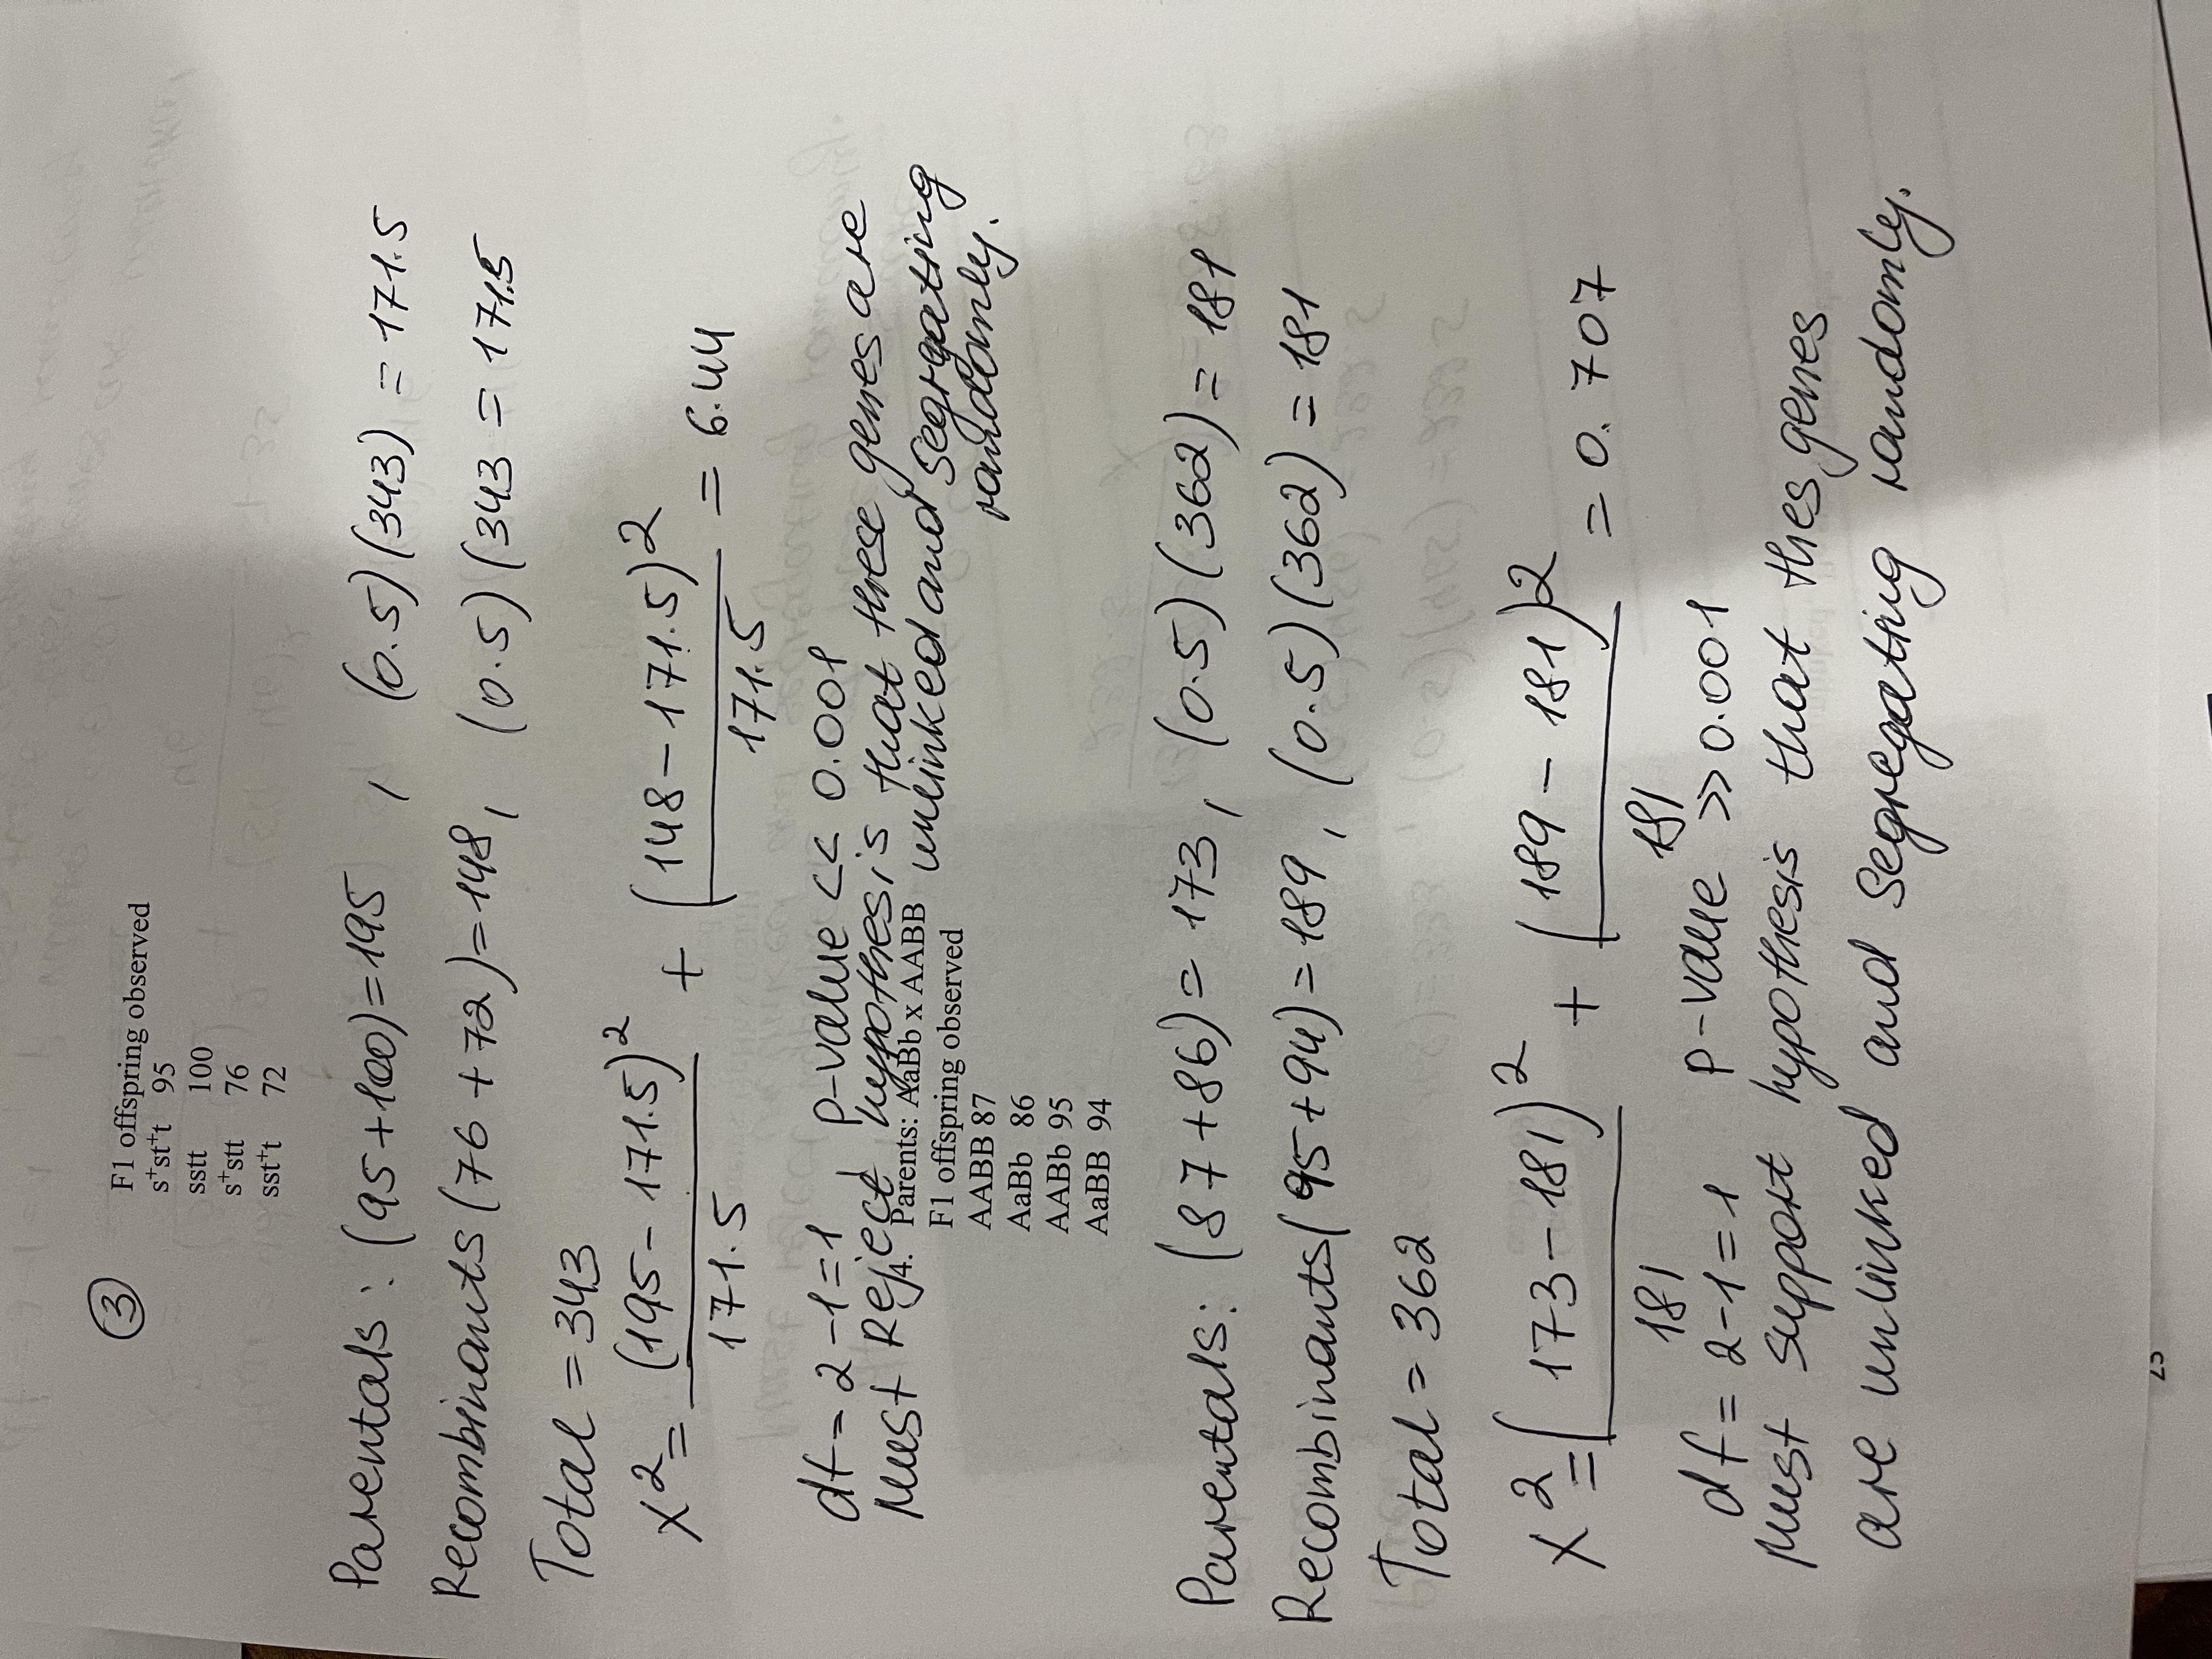 ③
F1 offspring observed
s⁺st⁺t 95
sstt 100
s⁺stt 76
sst⁺t 72
Parentals: (95+100)=195 , (0.5)(343) = 171.5
Recombinants (76+72)=148, (0.5)(343 = 171.5
Total = 343
X² = (195 - 171.5)² / 171.5 + (148 - 171.5)² / 171.5 = 6.44
df = 2-1=1 P-value << 0.001
Must Reject hypothesis that these genes are
unlinked and segregating
randomly.
4. Parents: AaBb x AABB
F1 offspring observed
AABB 87
AaBb 86
AABb 95
AaBB 94
Parentals: (87+86) = 173, (0.5)(362) = 181
Recombinants(95+94)=189, (0.5)(362) = 181
Total = 362
X² = (173-181)² / 181 + (189-181)2 / 181 = 0.707
df = 2-1=1 P-value >> 0.001
Must support hypothesis that thes genes
are unlinked and segregating randomly.